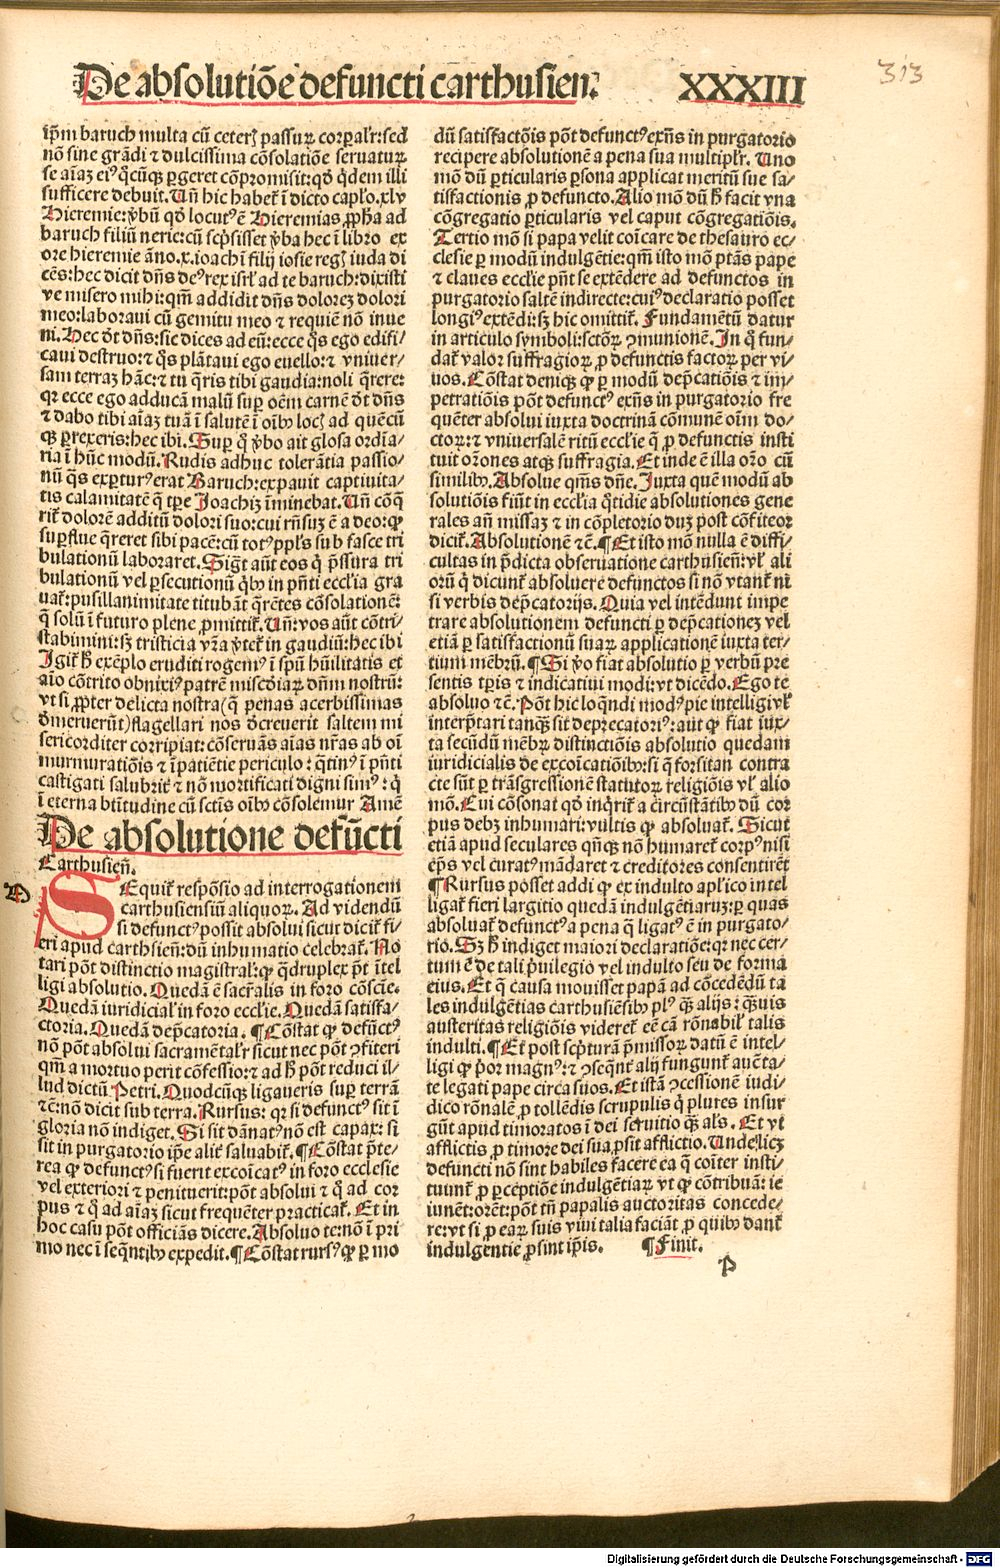 De absolutiõe defuncti carthusien̄. XXXIII
313
ip̄m baruch multa cū ceterꝭ passurꝰ corꝑalr̄: sed
nō sine grādi ⁊ dulcissima cōsolatiōe seruatur
se aīaz eiꝰ q̄cūqꝫ ꝑgeret cōpromisit: qd̓ q̄dem illi
sufficere debuit. Un̄ hic habet̄ ī dicto capl̓o. xlv
Hieremie: v̓bū qd̓ locutꝰ ē Hieremias ꝓph̄a ad
baruch filiū nerie: cū scp̄sisset v̓ba hec ī libro ex
ore hieremie āno. x. ioachī filij iosie regꝭ iuda di
cēs: hec dicit dn̄s deꝰ rex isrl̓ ad te baruch: dixisti
ve misero mihi: qm̄ addidit dn̄s dolorez dolori
meo: laboraui cū gemitu meo ⁊ requiē nō inue
ni. Hec dt̄ dn̄s: sic dices ad eū: ecce q̄s ego edifi/
caui destruo: ⁊ q̄s plātaui ego euello: ⁊ vniuer/
sam terraz hāc: ⁊ tu q̄ris tibi gaudia: noli q̄rere:
qꝛ ecce ego adducā malū suꝑ oēm carnē dt̄ dn̄s
⁊ dabo tibi aīaz tuā ī salutē ī oībꝰ locꝭ ad quēcū
qꝫ ꝑrexeris: hec ibi. Suꝑ q̄ v̓bo ait glosa ordīa/
ria ī hūc modū. Rudis adhuc tolerātia passio/
nū q̄s exꝑturꝰ erat Baruch: expauit captiuita/
tis calamitatē q̄ tꝑe Joachiz īminebat. Un̄ cōq̄
rit̄ dolorē additū dolori suo: cui rn̄suz ē a deo: ꝙ
suꝑflue q̄reret sibi pacē: cū totꝰ ppl̓s sub fasce tri
bulationū laboraret. Sigt̄ aūt eos q̄ p̄ssura tri
bulationū vel ꝑsecutionū q̄bꝰ in pn̄ti eccl̓ia gra
uat̄: pusillanimitate titubāt q̄rētes cōsolationē:
q̄ solū ī futuro plene ꝓmittit̄. Un̄: vos aūt cōtri/
stabimini: sꝫ tristicia vr̄a v̓tet̄ in gaudiū: hec ibi
Igit̄ h̄ exēplo eruditi rogemꝰ ī sp̄u hūilitatis et
aīo cōtrito obnixiꝰ patrē misc̄diaꝝ dn̄m nostrū:
vt si ꝓpter delicta nostra (q̄ penas acerbissimas
d̓meruerūt) flagellari nos d̓creuerit saltem mi
sericorditer corripiat: cōseruās aīas nr̄as ab oī
murmuratiōis ⁊ īpatiētie periculo: q̄tinꝰ ī pn̄ti
castigati salubrit̄ ⁊ nō mortificati digni simꝰ: q̄
ī eterna bt̄itudine cū sctīs oībꝰ cōsolemur Amē
De absolutione defūcti
Carthusien̄.
SEquit̄ respōsio ad interrogationem
carthusiensiū aliquoꝝ. Ad videndū
si defunctꝰ possit absolui sicut dicit̄ fi/
eri apud carthsien̄: dū inhumatio celebrat̄. No
tari pōt distinctio magistral̓: ꝙ q̄druplex pt̄ ītel
ligi absolutio. Quedā ē sacr̄alis in foro cōscīe.
Quedā iuridicial̓ in foro eccl̓ie. Quedā satisfa/
ctoria. Quedā dep̄catoria. ¶ Cōstat ꝙ defūctꝰ
nō pōt absolui sacramētalr̄ sicut nec pōt ꝯfiteri
qm̄ a mortuo perit cōfessio: ⁊ ad h̄ pōt reduci il/
lud dictū Petri. Quodcūqꝫ ligaueris suꝑ terrā
⁊c̄: nō dicit sub terra. Rursus: qꝛ si defunctꝰ sit ī
gloria nō indiget. Si sit dānatꝰ nō est capax: si
sit in purgatorio ip̄e alit̄ saluabit̄. ¶ Cōstat p̄te/
rea ꝙ defunctꝰ si fuerit excōicatꝰ in foro ecclesie
vel exteriori ⁊ penituerit: pōt absolui ⁊ q̄ ad cor
pus ⁊ q̄ ad aīaz sicut frequēter practicat̄. Et in
hoc casu pōt officiās dicere. Absoluo te: nō ī pri
mo nec ī seq̄ntibꝰ expedit. ¶ Cōstat rursꝰ ꝙ ꝑ mo
dū satisfactōis pōt defunctꝰ exn̄s in purgatorio
recipere absolutionē a pena sua multiplr̄. Uno
mō dū ꝑticularis ꝑsona applicat meritū sue sa/
tisfactionis ꝓ defuncto. Alio mō dū h̄ facit vna
cōgregatio ꝑticularis vel caput cōgregatiōis.
Tertio mō si papa velit coīcare de thesauro ec/
clesie ꝑ modū indulgētie: qm̄ isto mō ptās pape
⁊ claues eccl̓ie pn̄t se extēdere ad defunctos in
purgatorio saltē indirecte: cuiꝰ declaratio posset
longiꝰ extēdi: sꝫ hic omittit̄. Fundamētū datur
in articulo symboli: sctōꝝ ꝯmunionē. In q̄ fun/
dat̄ valor suffragioꝝ ꝓ defunctis factoꝝ per vi/
uos. Cōstat deniqꝫ ꝙ ꝑ modū dep̄catiōis ⁊ im/
petratiōis pōt defunctꝰ exn̄s in purgatorio fre
quēter absolui iuxta doctrinā cōmune oīm do/
ctoꝝ: ⁊ vniuersalē ritū eccl̓ie q̄ ꝓ defunctis insti
tuit or̄ones atqꝫ suffragia. Et inde ē illa or̄o cū
similibꝰ. Absolue qms̄ dn̄e. Juxta quē modū ab
solutiōis fiūt in eccl̓ia q̄tidie absolutiones gene
rales an̄ missaz ⁊ in cōpletorio duz post cōfiteor
dicit̄. Absolutionē ⁊c̄. ¶ Et isto mō nulla ē diffi/
cultas in p̄dicta obseruatione carthusien̄: vl̓ ali
orū q̄ dicunt̄ absoluere defunctos si nō vtant̄ nī
si verbis dep̄catorijs. Quia vel intēdunt impe
trare absolutionem defuncti ꝑ dep̄cationez vel
etiā ꝑ satisfactionū suaꝝ applicationē iuxta ter/
tium mēbrū. ¶ Si v̓o fiat absolutio ꝑ verbū pre
sentis tꝑis ⁊ indicatiui modi: vt dicēdo. Ego te
absoluo ⁊c̄. Pōt hic loq̄ndi modꝰ pie intelligi vl̓
interp̄tari tanqꝫ sit deprecatoriꝰ: aut ꝙ fiat iux/
ta secūdū mēbꝝ distinctiōis absolutio quedam
iuridicialis de excoīcatiōibꝰ: si q̄ forsitan contra
cte sūt ꝑ trāsgressionē statutoꝝ religiōis vl̓ alio
mō. Cui cōsonat qd̓ inq̄rit̄ a circūstātibꝰ dū cor
pus debꝫ inhumari: vultis ꝙ absoluat̄. Sicut
etiā apud seculares qn̄qꝫ nō humaret̄ corpꝰ nisi
ep̄s vel curatꝰ mādaret ⁊ creditores consentirēt
¶ Rursus posset addi ꝙ ex indulto apl̓ico intel
ligat̄ fieri largitio quedā indulgētiaruz: ꝑ quas
absoluat̄ defunctꝰ a pena q̄ ligatꝰ ē in purgato/
rio. Sꝫ h̄ indiget maiori declaratiōe: qꝛ nec cer/
tum ē de tali p̄uilegio vel indulto seu de forma
eius. Et q̄ causa mouisset papā ad cōcedēdū ta
les indulgētias carthusiēsibꝰ plꝰ q̄ꝫ alijs: q̄ꝫuis
austeritas religiōis videret̄ eē cā rōnabil̓ talis
indulti. ¶ Et̄ post scp̄turā p̄missoꝝ datū ē intel/
ligi ꝙ p̓or magnꝰ: ⁊ ꝯseq̄nt̄ alij fungunt̄ auc̄ta/
te legati pape circa suos. Et istā ꝯcessionē iudi/
dico rōnalē ꝓ tollēdis scrupulis q̄ plures insur
gūt apud timoratos ī dei seruitio q̄ꝫ al̓s. Et vt
afflictis ꝓ timore dei sua ꝓsit afflictio. Unde licꝫ
defuncti nō sint habiles facere ea q̄ coīter insti/
tuunt̄ ꝓ ꝑceptiōe indulgētiaꝝ vt ꝙ cōtribuāt: ie
iunēt: orēt: pōt tn̄ papalis auctoritas concede/
re: vt si ꝓ eaꝝ suis viui talia faciāt ꝓ quibꝰ dant̄
indulgentie ꝓsint ip̄is. ¶ Finit.
Digitalisierung gefördert durch die Deutsche Forschungsgemeinschaft - DFG